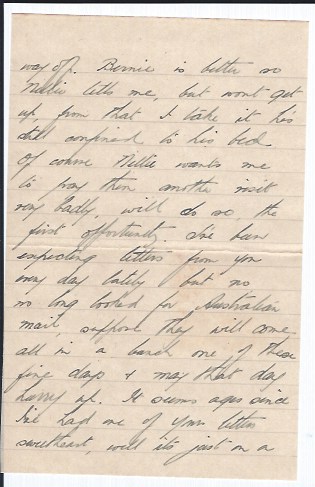 way off. Bernie is better so
Nellie tells me, but wont get
up, from that I take it he's
still confined to his bed.
Of course Nellie wants me
to pay them another visit
very badly, will do so, the
first opportunity. I've been
expecting letters from you
every day lately but no
so long looked for Australian
mail, suppose they will come
all in a bunch one of these
fine days & may that day
hurry up. It seems ages since
I've had one of your letters
sweetheart, well its just on a